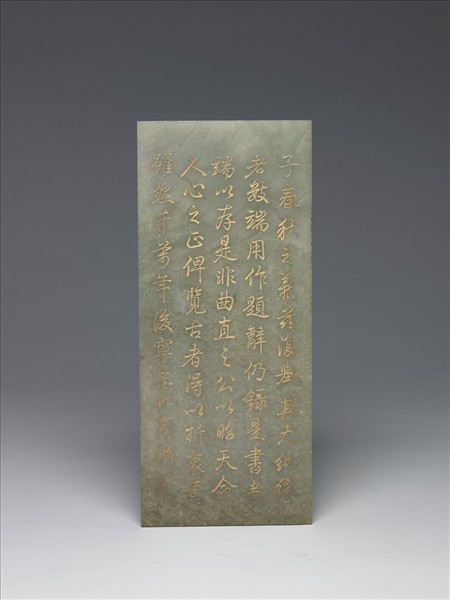 子春秋之義茲復舉其大紕繆
者數端用作題辭仍錄是書弁
端以存是非曲直之公以昭天命
人心之正俾覽古者得以折衷焉
雖然千萬年後寧